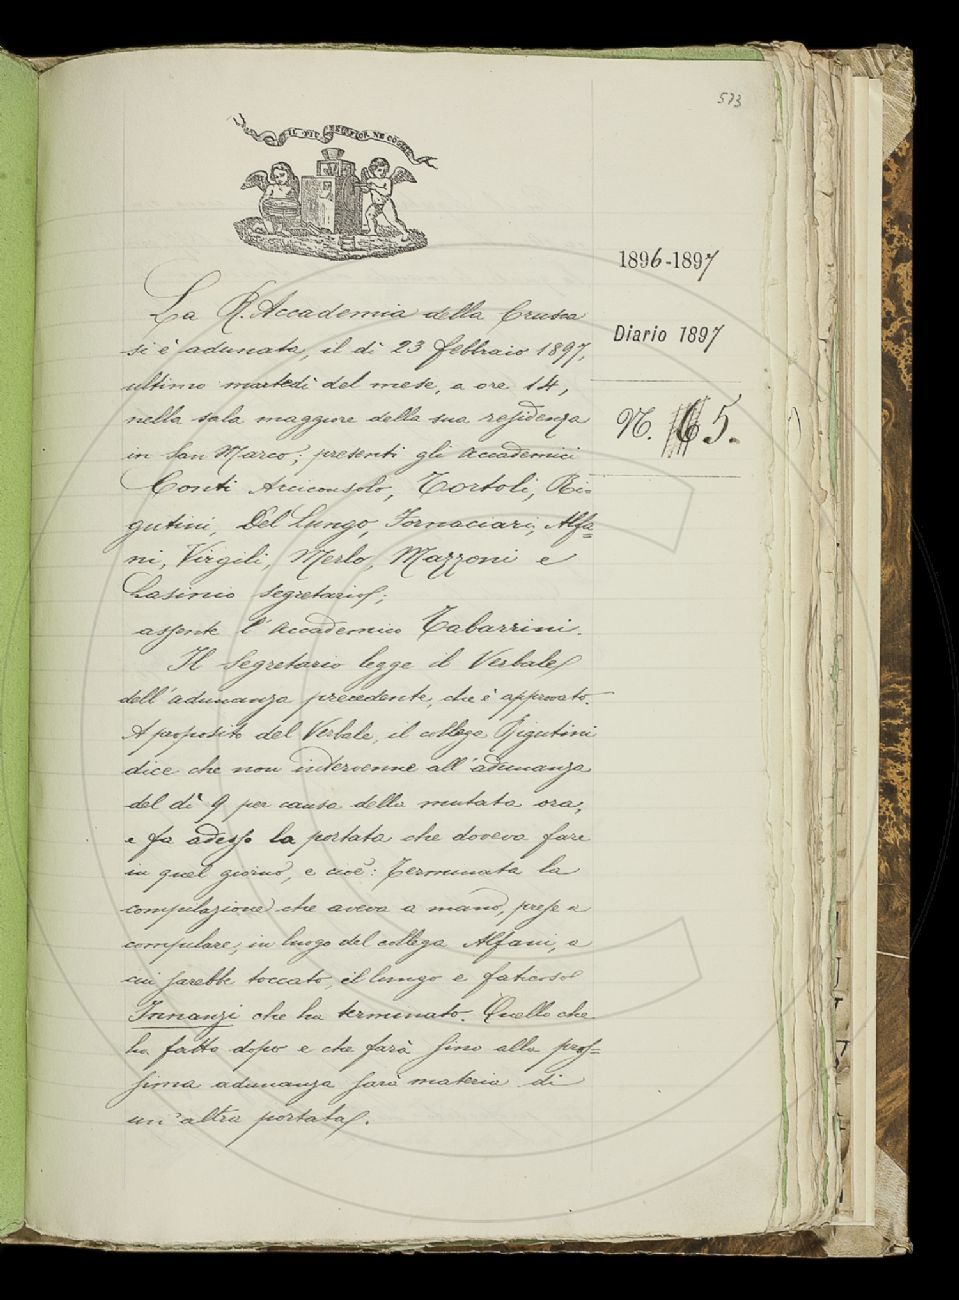 573
IL PIÙ BEL FIOR NE COGLIE
1896-1897
Diario 1897
N. 6 5.
La R. Accademia della Crusca
si è adunata, il dì 23 febbraio 1897,
ultimo martedì del mese, a ore 14,
nella sala maggiore della sua residenza
in San Marco; presenti gli accademici
Conti Arciconsolo, Tortoli, Ri-
gutini, Del Lungo, Fornaciari, Alfa=
ni, Virgili, Merlo, Mazzoni e
Casinio segretario;
assente l'accademico Tabarrini.
Il Segretario legge il Verbale
dell'adunanza precedente, che è approvato.
A proposito del Verbale, il collega Rigutini
dice che non intervenne all'adunanza
del dì 9 per causa della mutata ora,
e fa adesso la portata che doveva fare
in quel giorno, e cioè: Terminata la
compilazione che aveva a mano, prese a
compilare, in luogo del collega Alfani, a
cui sarebbe toccato, il lungo e faticoso
Innanzi che ha terminato. Quello che
ha fatto dopo e che farà sino alla pros=
sima adunanza sarà materia di
un'altra portata.